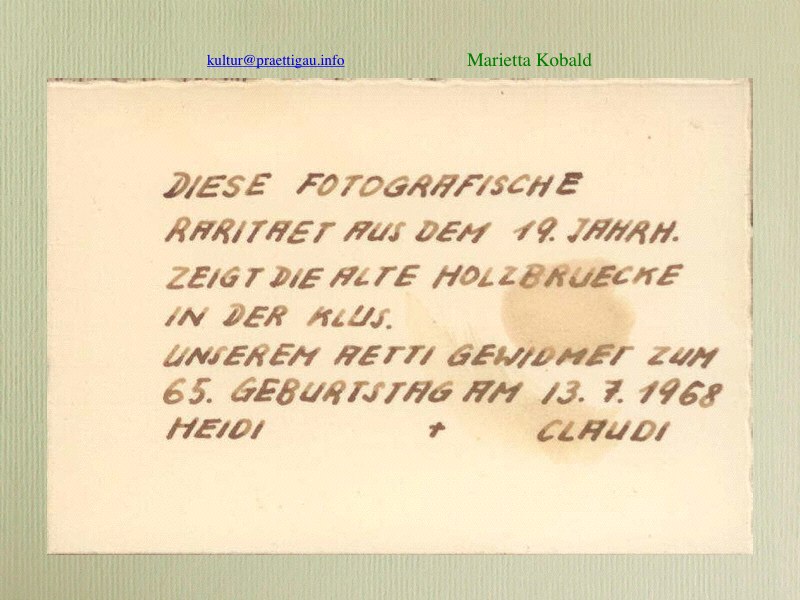 kultur@praettigau.info Marietta Kobald
DIESE FOTOGRAFISCHE
RARITAET AUS DEM 19. JAHRH.
ZEIGT DIE ALTE HOLZBRUECKE
IN DER KLUS.
UNSEREM AETTI GEWIDMET ZUM
65. GEBURTSTAG AM 13. 7. 1968
HEIDI + CLAUDI